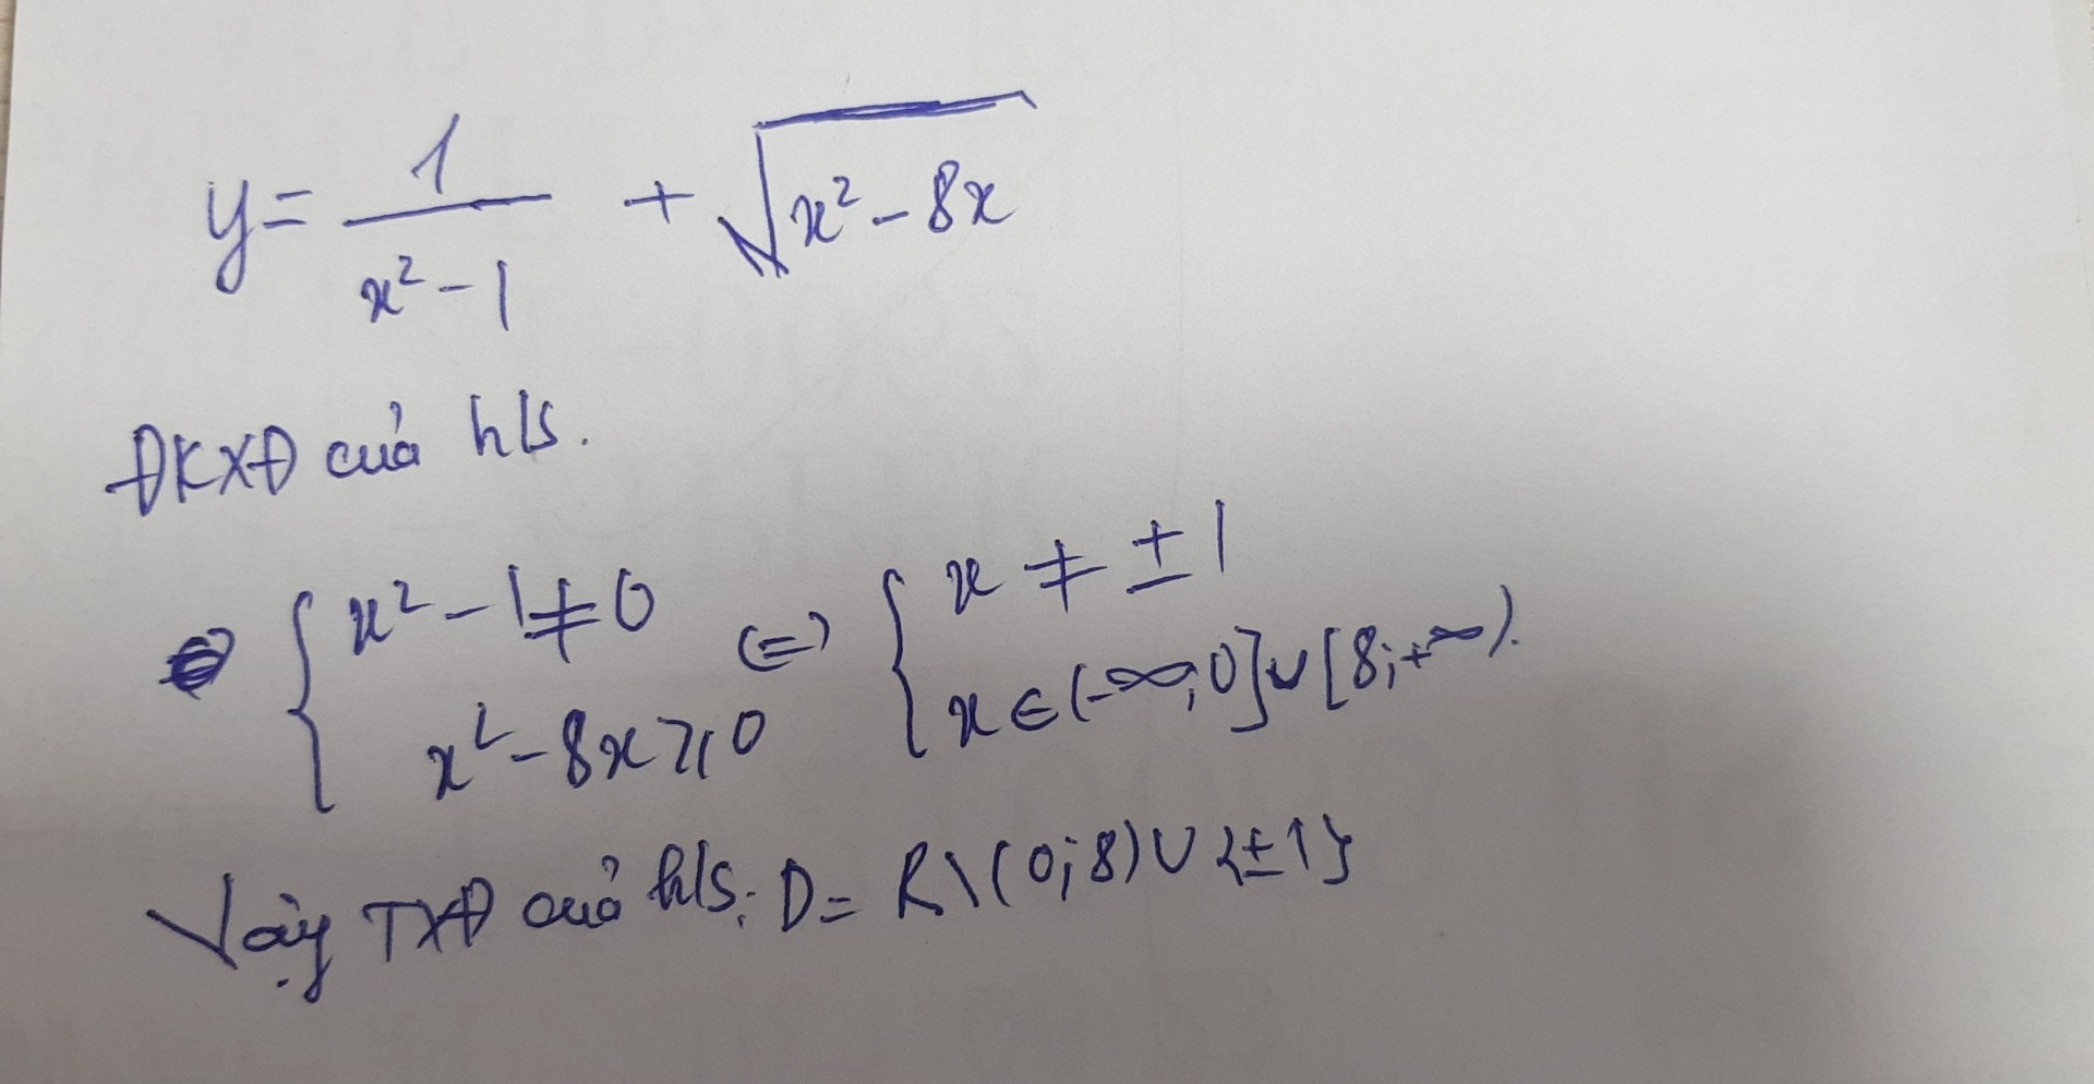 y = 1/(x² - 1) + √(x² - 8x)
ĐKXĐ của h/s.
{ x² - 1 ≠ 0 (=) { x ≠ ± 1
x² - 8x ≥ 0 x ∈ (-∞; 0] ∪ [8; +∞).
Vậy TXĐ của h/s: D = R \ (0; 8) ∪ {± 1}